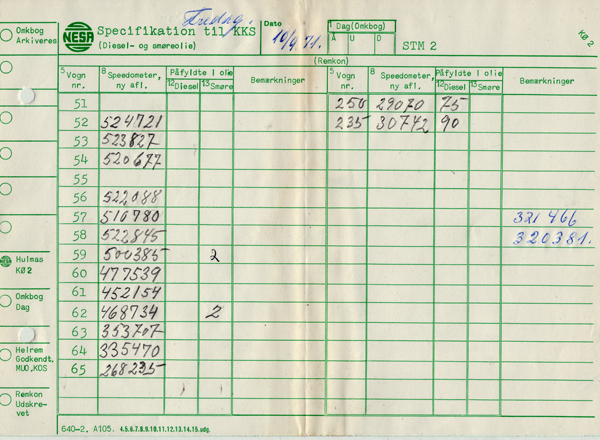 Omkbog
Arkiveres
NESA
Specifikation til KKS
(Diesel- og smøreolie)
Fredag.
Dato
10/4 71.
1 Dag(Omkbog)
A U D
STM 2
KØ 2
(Remkon)
5 Vogn nr. 8 Speedometer, ny afl. Påfyldte l olie 12 Diesel 13 Smøre Bemærkninger 5 Vogn nr. 8 Speedometer, ny afl. Påfyldte l olie 12 Diesel 13 Smøre Bemærkninger
51 250 29070 75
52 524721 235 30772 90
53 523827
54 520677
55
56 522088
57 510780 321466
58 522845 320381.
59 500385 2
60 477539
61 452154
62 468734 2
63 353707
64 335470
65 268235
Hulmas
KØ 2
Omkbog
Dag
Helrem
Godkendt,
MUO,KOS
Remkon
Udskre-
vet
640-2, A105. 4.5.6.7.8.9.10.11.12.13.14.15.udg.